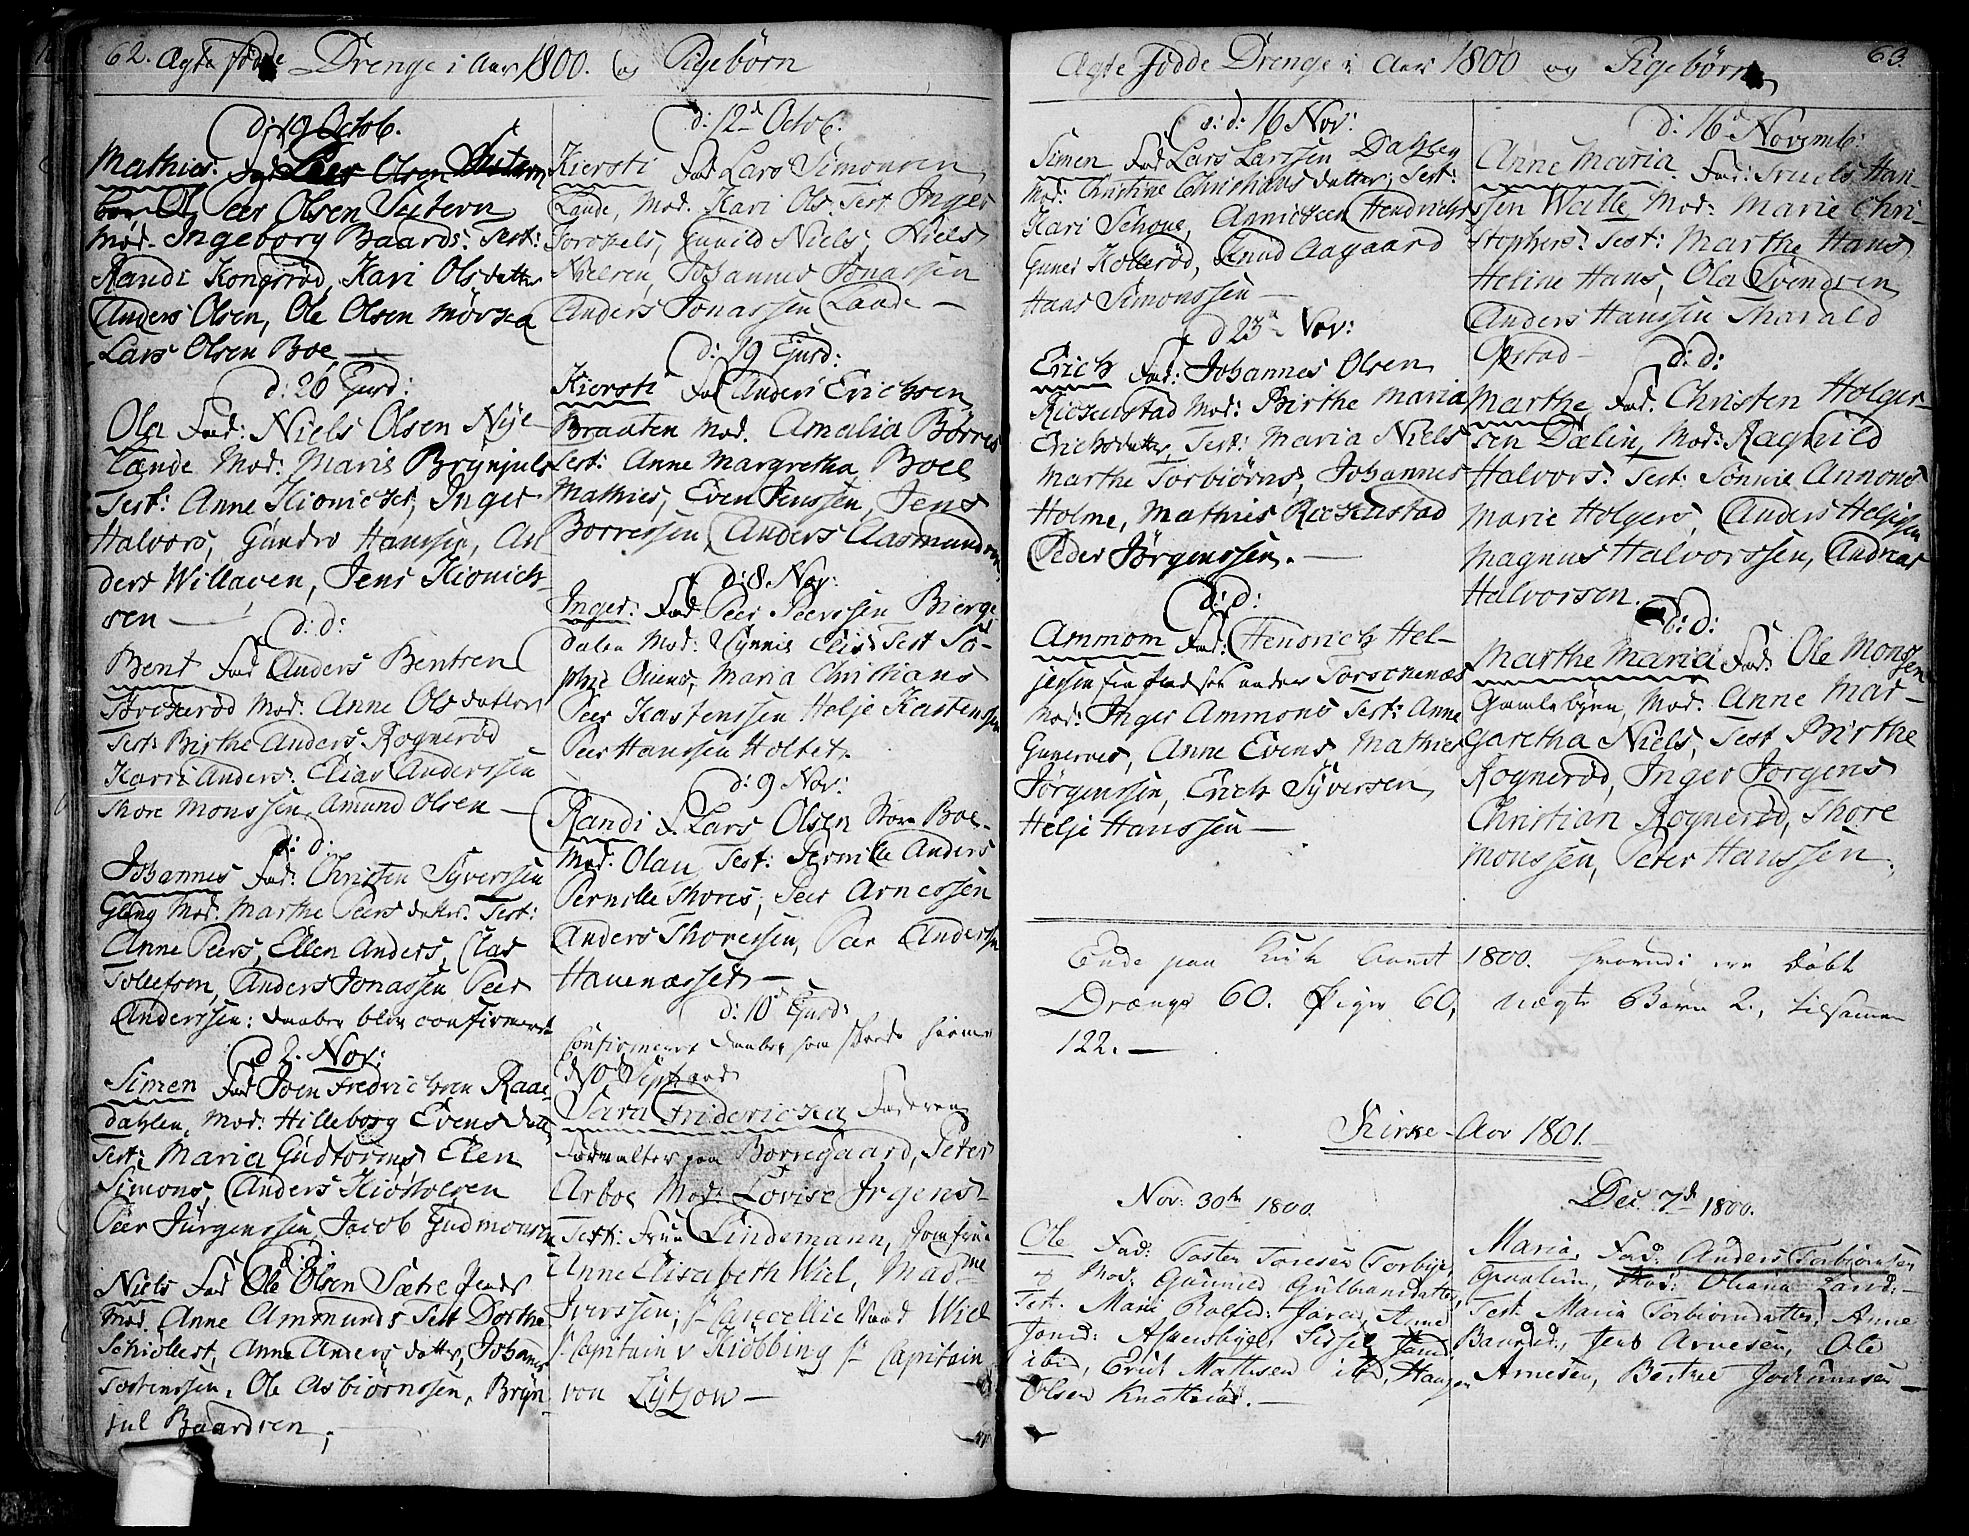 62. Ægte fødde Drenge i Aar 1800. og Pigebørn
d: 19 Octob.
Mathies: Fad Peer Olsen
Peer Olsen Sextern
Mod. Ingeborg Baards: Test:
Randi Kongsrød, Kari Olsdatter
Anders Olsen, Ole Olsen Mørska
Lars Olsen Boe —
d: 26 Ejusd:
Ola Fad: Niels Olsen Nye-
lænde Mod: Maris Brynjuls
Test: Anne Kionicksr, Inger
Halvors, Gunder Hanssen, An
ders Willaven, Jens Kionick
sen —
d: d:
Bent Fad Anders Bentsen
Torckerød Mod: Anne Olsdatter
Test: Birthe Anders Rognerød
Karri Anders: Elias Anderssen
Thore Monssen, Amund Olsen —
d: d.
Johannes Fad: Christen Syverssen
Gleng Mod: Marthe Peers datter. Test:
Anne Peers, Ellen Anders, Clas
Tollefsen, Anders Jonassen Peer
Anderssen: Daaben blev confirmeret
d 2. Nov:
Simen Fad Joen Fredrichsen Raae-
dahlen, Mod: Hilleborg Evens datt
Test: Maria Gudtorms, Elen
Simons, Anders Kiøstolsen
Peer Jürgenssen, Jacob Gudmonsen
d: d:
Niels Fad Ole Olsen Sætre
Mod. Anne Ammunds Test Dorthe
Schiolbert, Anne Anders datter, Johannes
Tostenssen, Ole Asbiørnssen, Bryn
jul Baardsen,
d: 12d Octob.
Kiersti Fad Lars Simonsen
Lande, Mod. Kari Ols. Test Inger
Torckels, Gunild Niels, Niels
Nielsen, Johannes Jonassen
Anders Jonassen Lande —
d: 19 Ejusd:
Kiersti Fad Anders Erichsen
Braaten Mod. Amalia Børres
Test: Anne Margretha Boel
Mathies, Even Jenssen, Jens
Borressen, Anders Aasmundsen
d: 8. Nov:
Inger: Fad Peer Peerssen Bierge
dalen Mod: Synnis Elis: Test So-
phie Ouens, Maria Christians
Peer Kastenssen Helje Kastenssen
Peer Hanssen Holtet.
d: 9 Nov:
Randi F. Lars Olsen Store Boe.
Mod. Olau, Test: Pernille Anders
Pernille Thores, Peer Arnessen
Anders Thoressen, Peer Anderssen
Hauenæsset —
d: 10d Ejusd:
Confirmeret Daaben som skeede hiemme
Sara Friderica Faderen
Forvalter paa Borregaard, Peter
Arboe Mod: Lovise Irgens
Test: Frue Lindemann, Jomfrue
Anne Elisabeth Wiel, Madme
Iverssen; Hr Cancellie Raad Wiel
Hr Capitain v Kiøbbing Hr Capitain
von Lytzow —
Ægte Fødde Drenge i Aar 1800 og Pigebørn 63.
d: 16 Nov:
Simen Fad Lars Larssen Dahleg
Mod: Christine Christians datter, Test:
Kari Schoue, Annichen Hendrichs
Guner Kollerød, Knud Aagaard
Hans Simonssen —
d 23d Nov:
Erich Fad: Johannes Olsen
Rickenstad Mod: Birthe Maria
Erichsdatter, Test: Maria Niels
Marthe Torbiørns, Johannes
Holme, Mathies Reckenstad
Peder Jørgenssen. —
d: d:
Ammom Fad: Hendrich Hel-
jessen under Torschenæs
Mod: Inger Ammons Test: Anne
Guneroes, Anne Evens, Mathies
Jørgenssen, Erich Syversen
Helje Hanssen —
d: 16d Novemb:
Anne Maria Fad: Truels Han-
ssen Walle Mod: Marie Chri-
stophers: Test: Marthe Hans
Heline Hans, Ola Svendsen
Anders Hanssen Tharald
Opstad — d: d:
Marthe Fad: Christen Holger-
sen Dælin, Mod: Raghild
Halvors: Test: Sonnie Annons
Marie Holgers, Anders Heljessen
Magnus Halvorssen, Andreas
Halvorsen.
d: d:
Marthe Maria Fad: Ole Monssen
Gamlebyen, Mod: Anne Mar-
garetha Niels, Test Birthe
Rognerød, Inger Jørgens
Christian Rognerød, Thore
Monssen, Peter Hanssen.
Ende paa Kirke Aaret 1800. hvorudi ere Døbt
Drænge 60. Piger 60, uægte Børn 2., tilsamen
122. —
Kirke-Aar 1801.
Nov: 30th 1800.
Ole Fad: Tosten Toresen Torbye,
Mod: Gunnild Gulbrandsdatter
Tst. Mari Rolfsd: Anne
Jonsd: Askersbye, Sidsel
ibid, Erich Mathisen ibd, Hans
Olsen Knatterød. —
Dec. 7d 1800.
Maria, Fad: Anders Torbiørnsen
Opsalein, Mod: Oleana Land: —
Test. Maria Torbiornsdatter, Anne
Baardsd:, Jens Arnesen, Ole
Arnesen, Berthe Jochumsen —